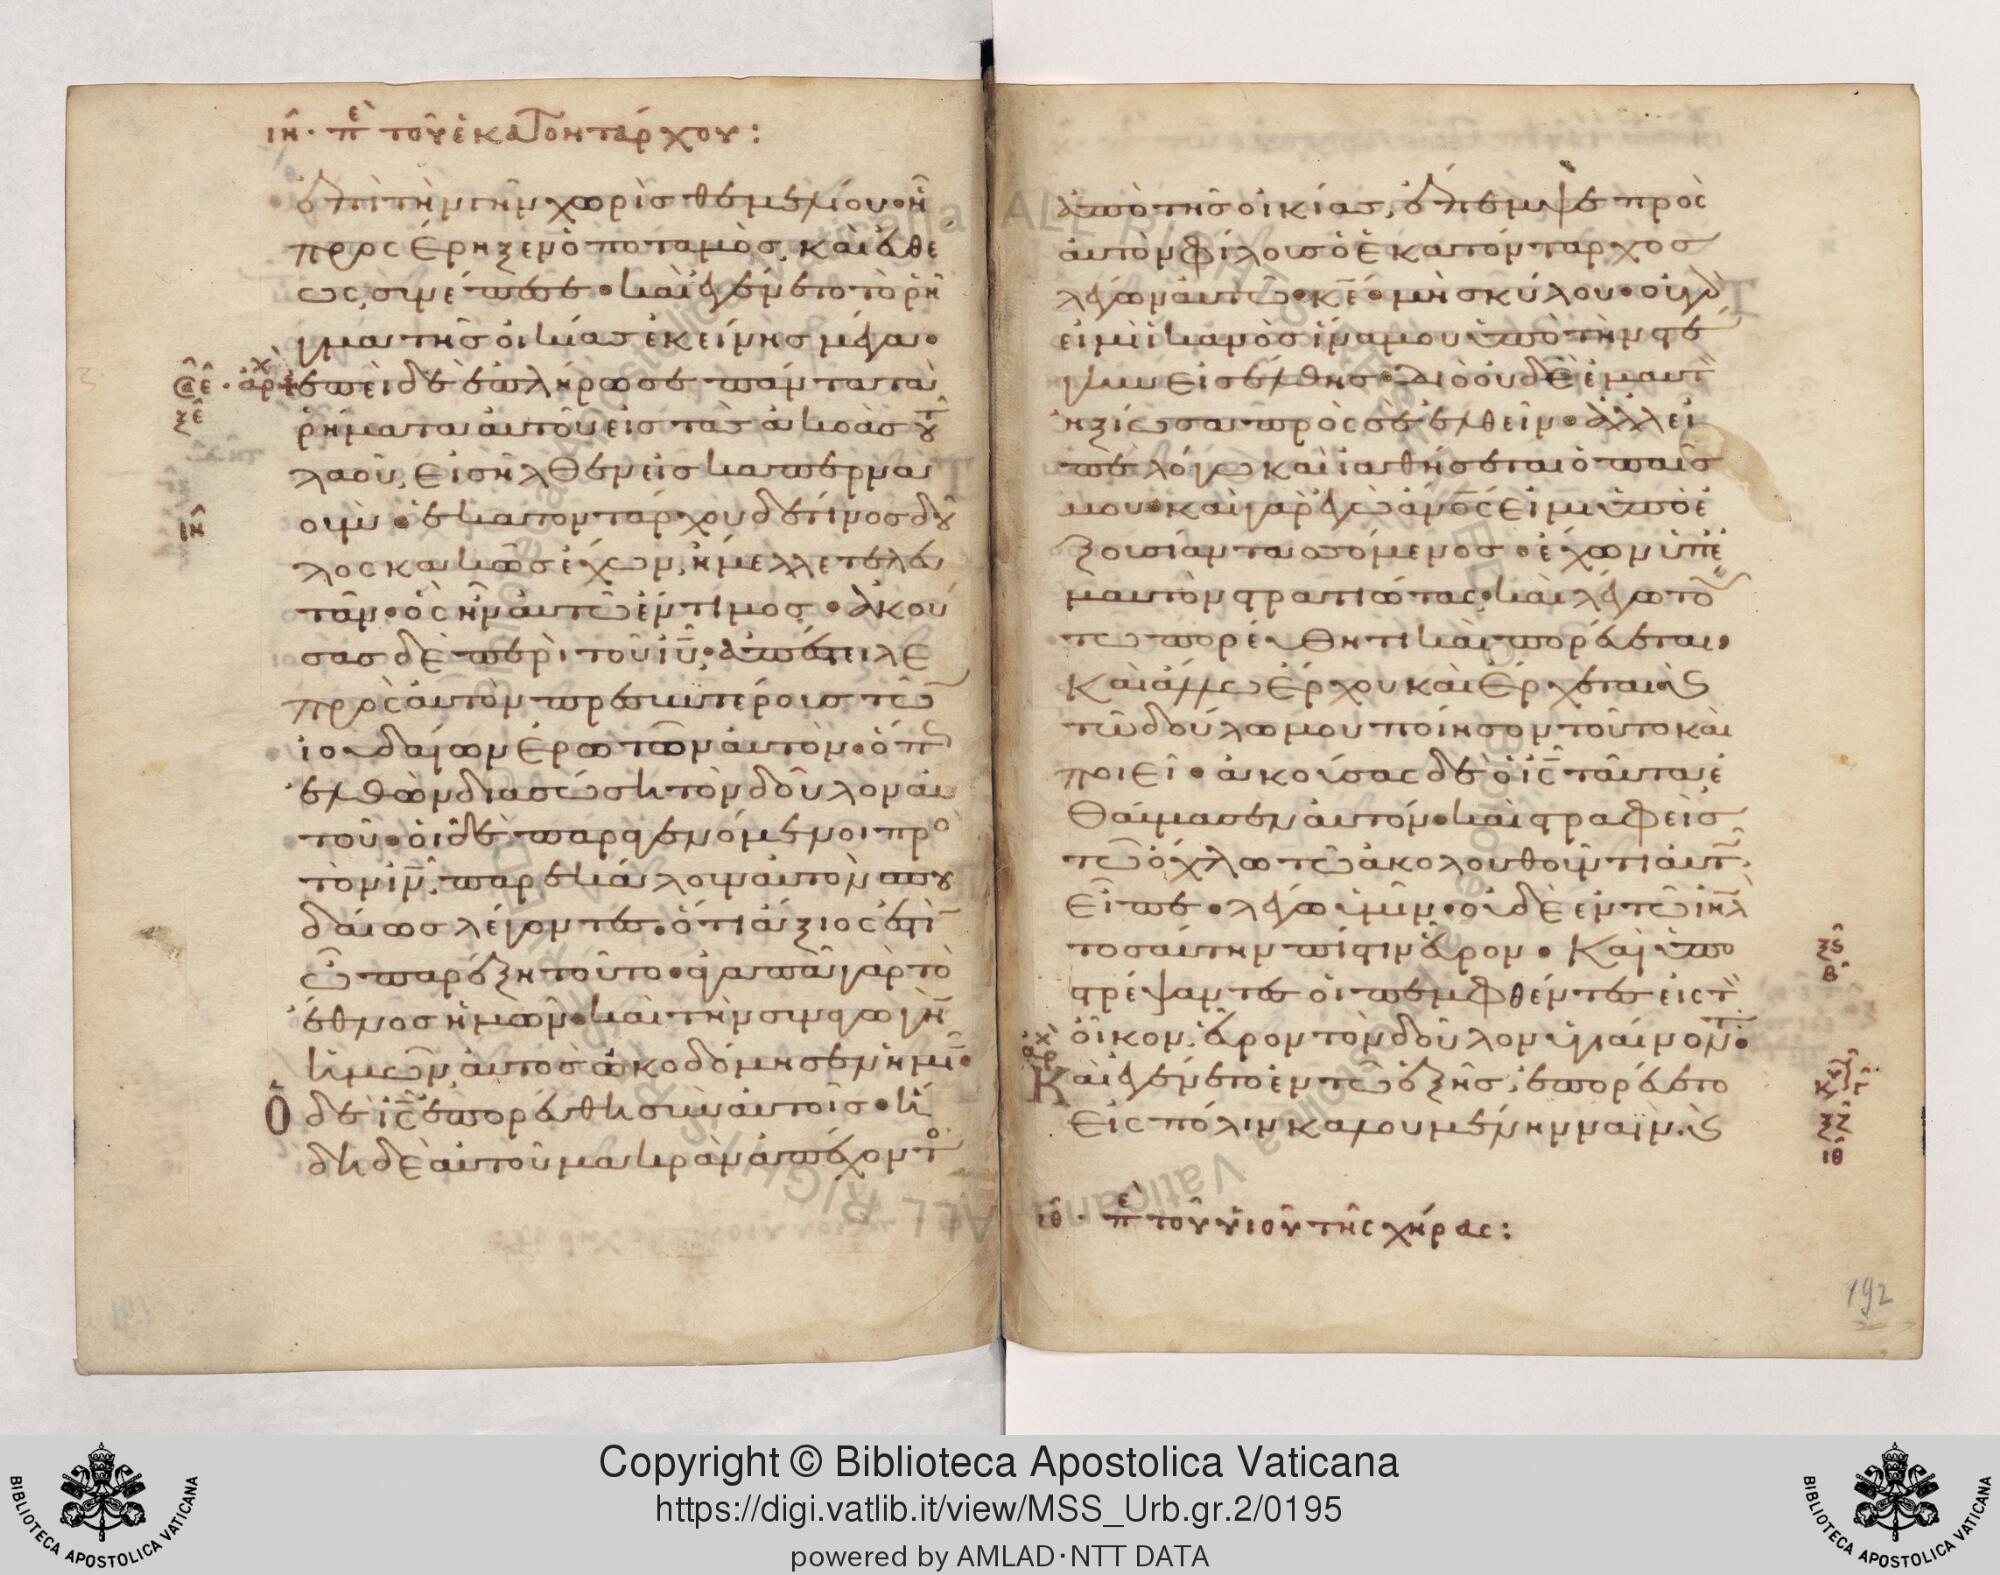 ιη · πε τοῦ ἑκατοντάρχου :
ἐπὶ τὴν γῆν χωρὶς θεμελίου · ἧ
προσέρηξεν ὁ ποταμὸς, καὶ εὐθέ
ως συνέπεσε · καὶ ἐγένετο τὸ ῥῆ
γμα τῆς οἰκίας ἐκείνης μέγα ·
ἐπεὶ δὲ ἐπλήρωσε πάντα τὰ
ῥήματα αὐτοῦ εἰς τὰς ἀκοὰς τοῦ
λαοῦ, εἰσῆλθεν εἰς καπερνα
ούμ · ἑκατοντάρχου δέ τινος δοῦ
λος κακῶς ἔχων, ἤμελλε τελευ
τᾶν · ὃς ἦν αὐτῶ ἔντιμος · ἀκού
σας δὲ περὶ τοῦ ιυ, ἀπέστειλε
πρὸς αὐτὸν πρεσβυτέρους τῶν
ἰουδαίων ἐρωτῶν αὐτὸν · ὅπως
ἐλθὼν διασώση τὸν δοῦλον αὐ
τοῦ · οἱ δὲ παραγενόμενοι προς
τὸν ιν, παρεκάλουν αὐτὸν σπου
δαίως λέγοντες · ὅτι ἄξιός ἐστιν
ὧ παρέξη τοῦτο · ἀγαπᾶ γὰρ τὸ
ἔθνος ἡμῶν · καὶ τὴν συναγωγὴν
ἡμῶν αὐτὸς ὠκοδόμησεν ἡμῖν ·
Ὁ δὲ ις ἐπορεύθη σὺν αὐτοῖς · ἤ
δη δὲ αὐτοῦ μακρὰν ἀπέχοντος
σε · ἀρχ
ξε
ιη
ἀπὸ τῆς οἰκίας, ἔπεμψε πρὸς
αὐτὸν φίλους ὁ ἑκατόνταρχος
λέγων αὐτῶ · κε · μὴ σκύλλου · οὐ γὰρ
εἰμὶ ἱκανὸς ἵνα μου ὑπὸ τὴν στέ
γην εἰσέλθης · διὸ οὐδὲ ἐμαυτὸν
ἠξίωσα πρὸς σὲ ἐλθεῖν · ἀλλ εἰ
πὲ λόγω καὶ ἰαθήσεται ὁ παῖς
μου · καὶ γὰρ ἐγὼ ανος εἰμι ὑπὸ ἐ
ξουσίαν τασσόμενος · ἔχων ὑπ ἐ
μαυτὸν στρατιώτας · καὶ λέγω τού
τω πορεύθητι καὶ πορεύεται ·
καὶ ἄλλω ἔρχου καὶ ἔρχεται · καὶ
τῶ δούλω μου ποίησον τοῦτο καὶ
ποιεῖ · ἀκούσας δὲ ὁ ις ταῦτα ἐ
θαύμασεν αὐτόν · καὶ στραφεὶς
τῶ ὄχλω τῶ ἀκολουθοῦντι αὐτῶ
εἶπε · λέγω ὑμῖν · οὐδὲ ἐν τῶ ιηλ
τοσαύτην πίστιν εὗρον · Καὶ ὑπο
στρέψαντες οἱ πεμφθέντες εἰς τὸν
οἶκον, εὗρον τὸν δοῦλον ὑγιαίνοντα ·
Καὶ ἐγένετο ἐν τῶ ἑξῆς, ἐπορεύετο
εἰς πόλιν καλουμένην ναΐν, καὶ
ἀρχ
ξς
β
ξζ
ιθ
ιθ · πε τοῦ υἱοῦ τῆς χήρας :
192
BIBLIOTECA APOSTOLICA VATICANA
Copyright © Biblioteca Apostolica Vaticana
https://digi.vatlib.it/view/MSS_Urb.gr.2/0195
powered by AMLAD·NTT DATA
BIBLIOTECA APOSTOLICA VATICANA